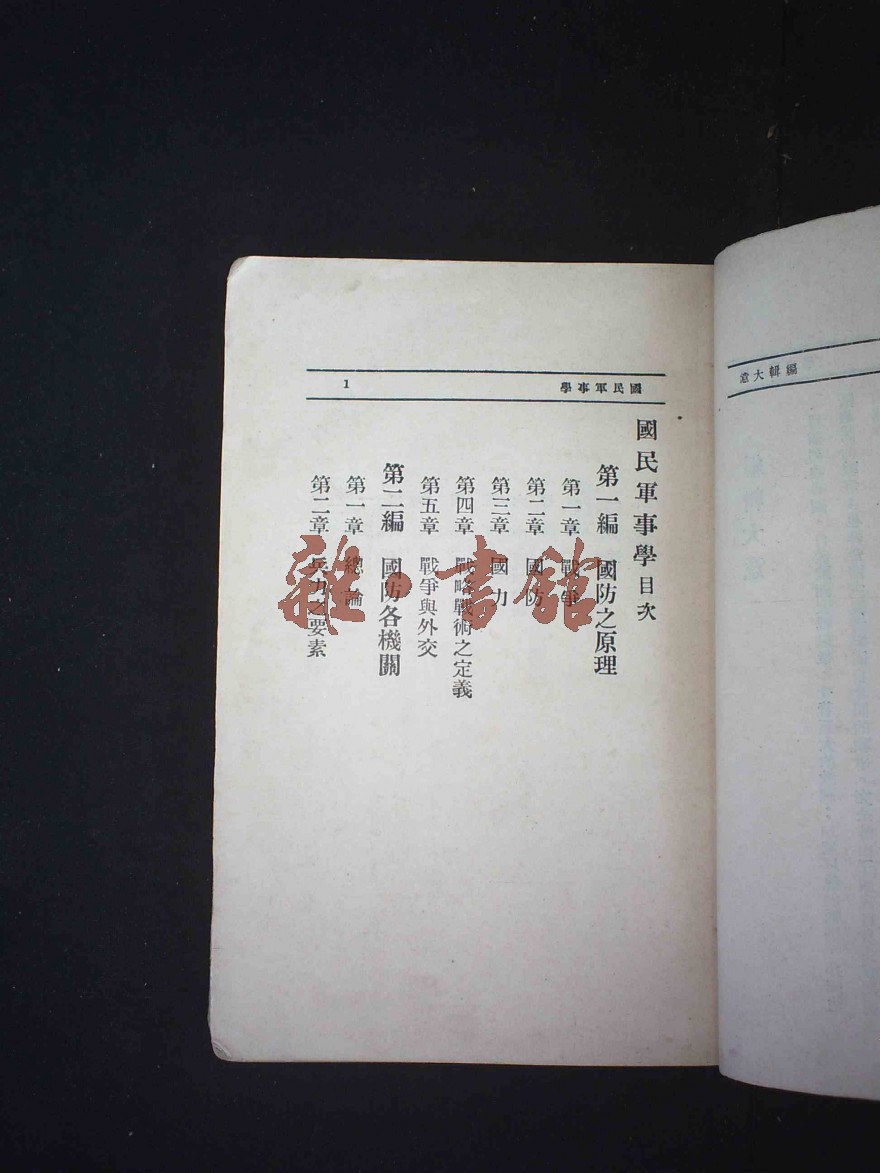 編輯大意
國民軍事學
1
國民軍事學目次
第一編 國防之原理
第一章 戰爭
第二章 國防
第三章 國力
第四章 戰略戰術之定義
第五章 戰爭與外交
第二編 國防各機關
第一章 總論
第二章 兵力之要素
雜·書館